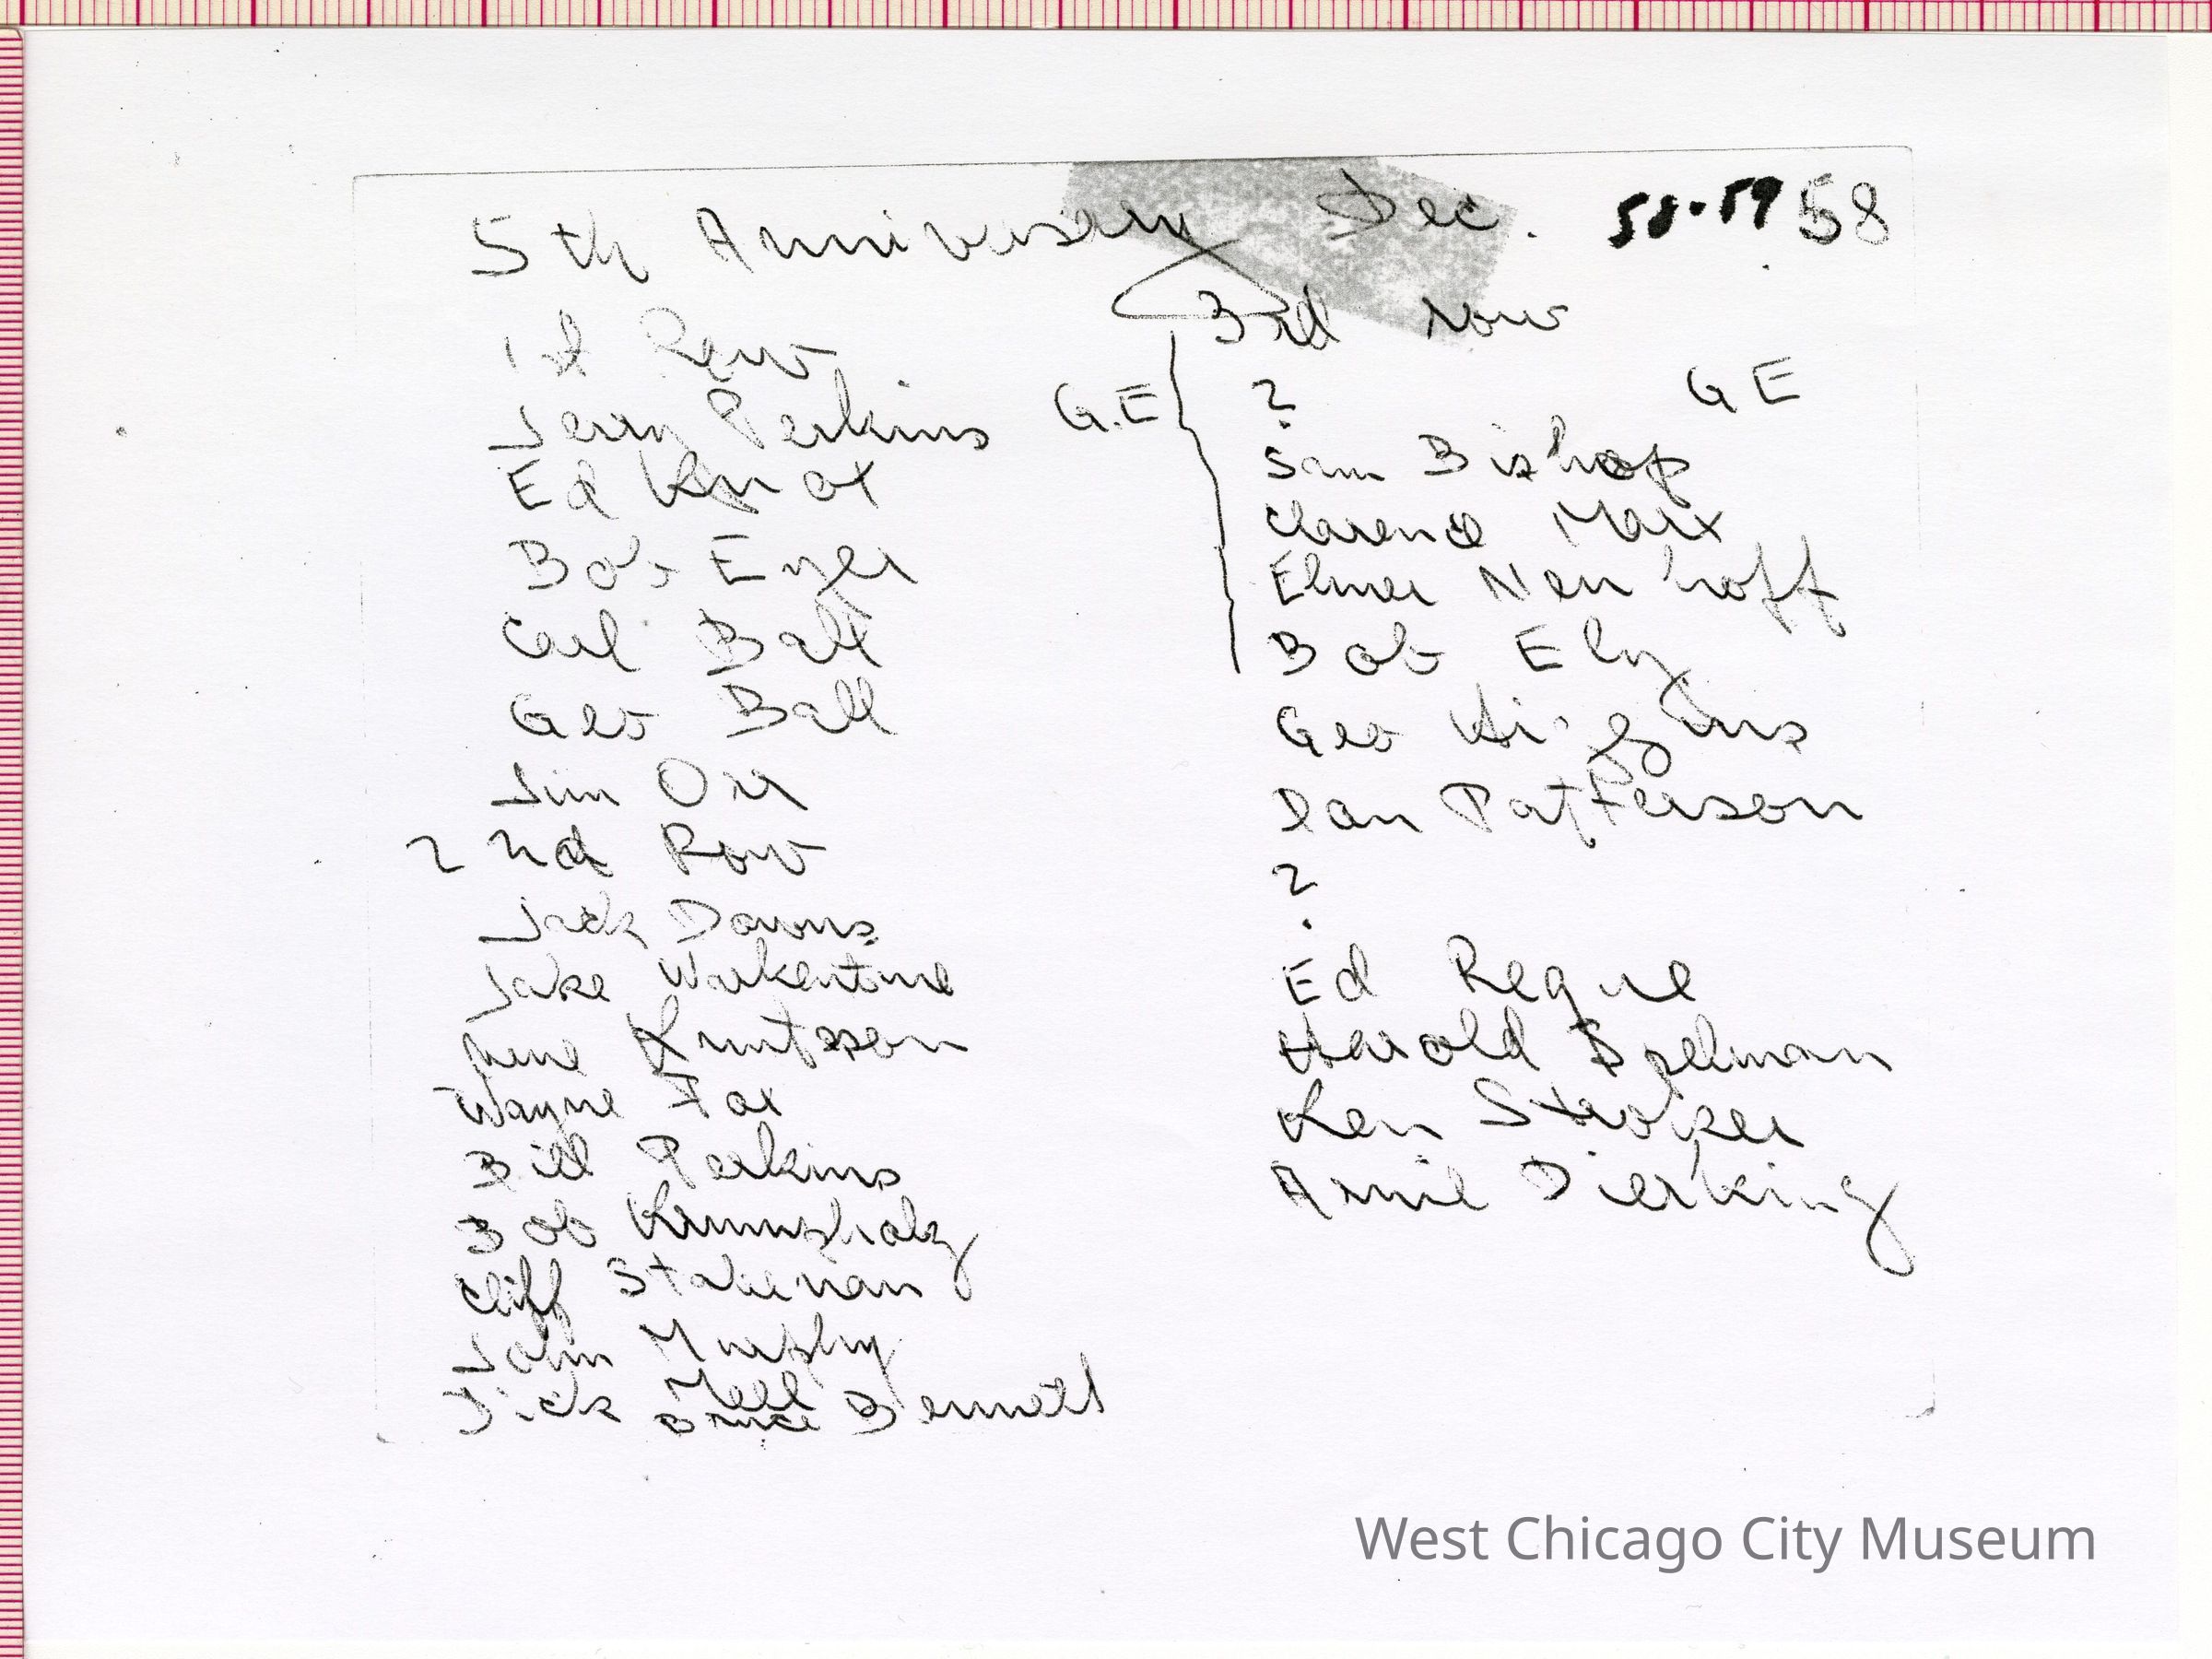 5th Anniversary Dec. 58-59 58
1st Row
Jerry Perkins
Ed Knox
Bob Enger
Carl Balt
Geo Ball
Jim Orr
2 2nd Row
Jack Downs
Jake Warkentine
Knutson
Wayne Fox
Bill Perkins
Bob Krumsholz
Cliff Stakeman
John Murphy
Dick Mell
Bruce Bennett
3rd row
G.E ? GE
Sam Bishop
Clarence Marx
Elmer Nen hoff
Bob Ely
Geo Higgins
Dan Patterson
?
Ed Reque
Harold Spelman
Ken Stroker
Arnie Dierking
West Chicago City Museum